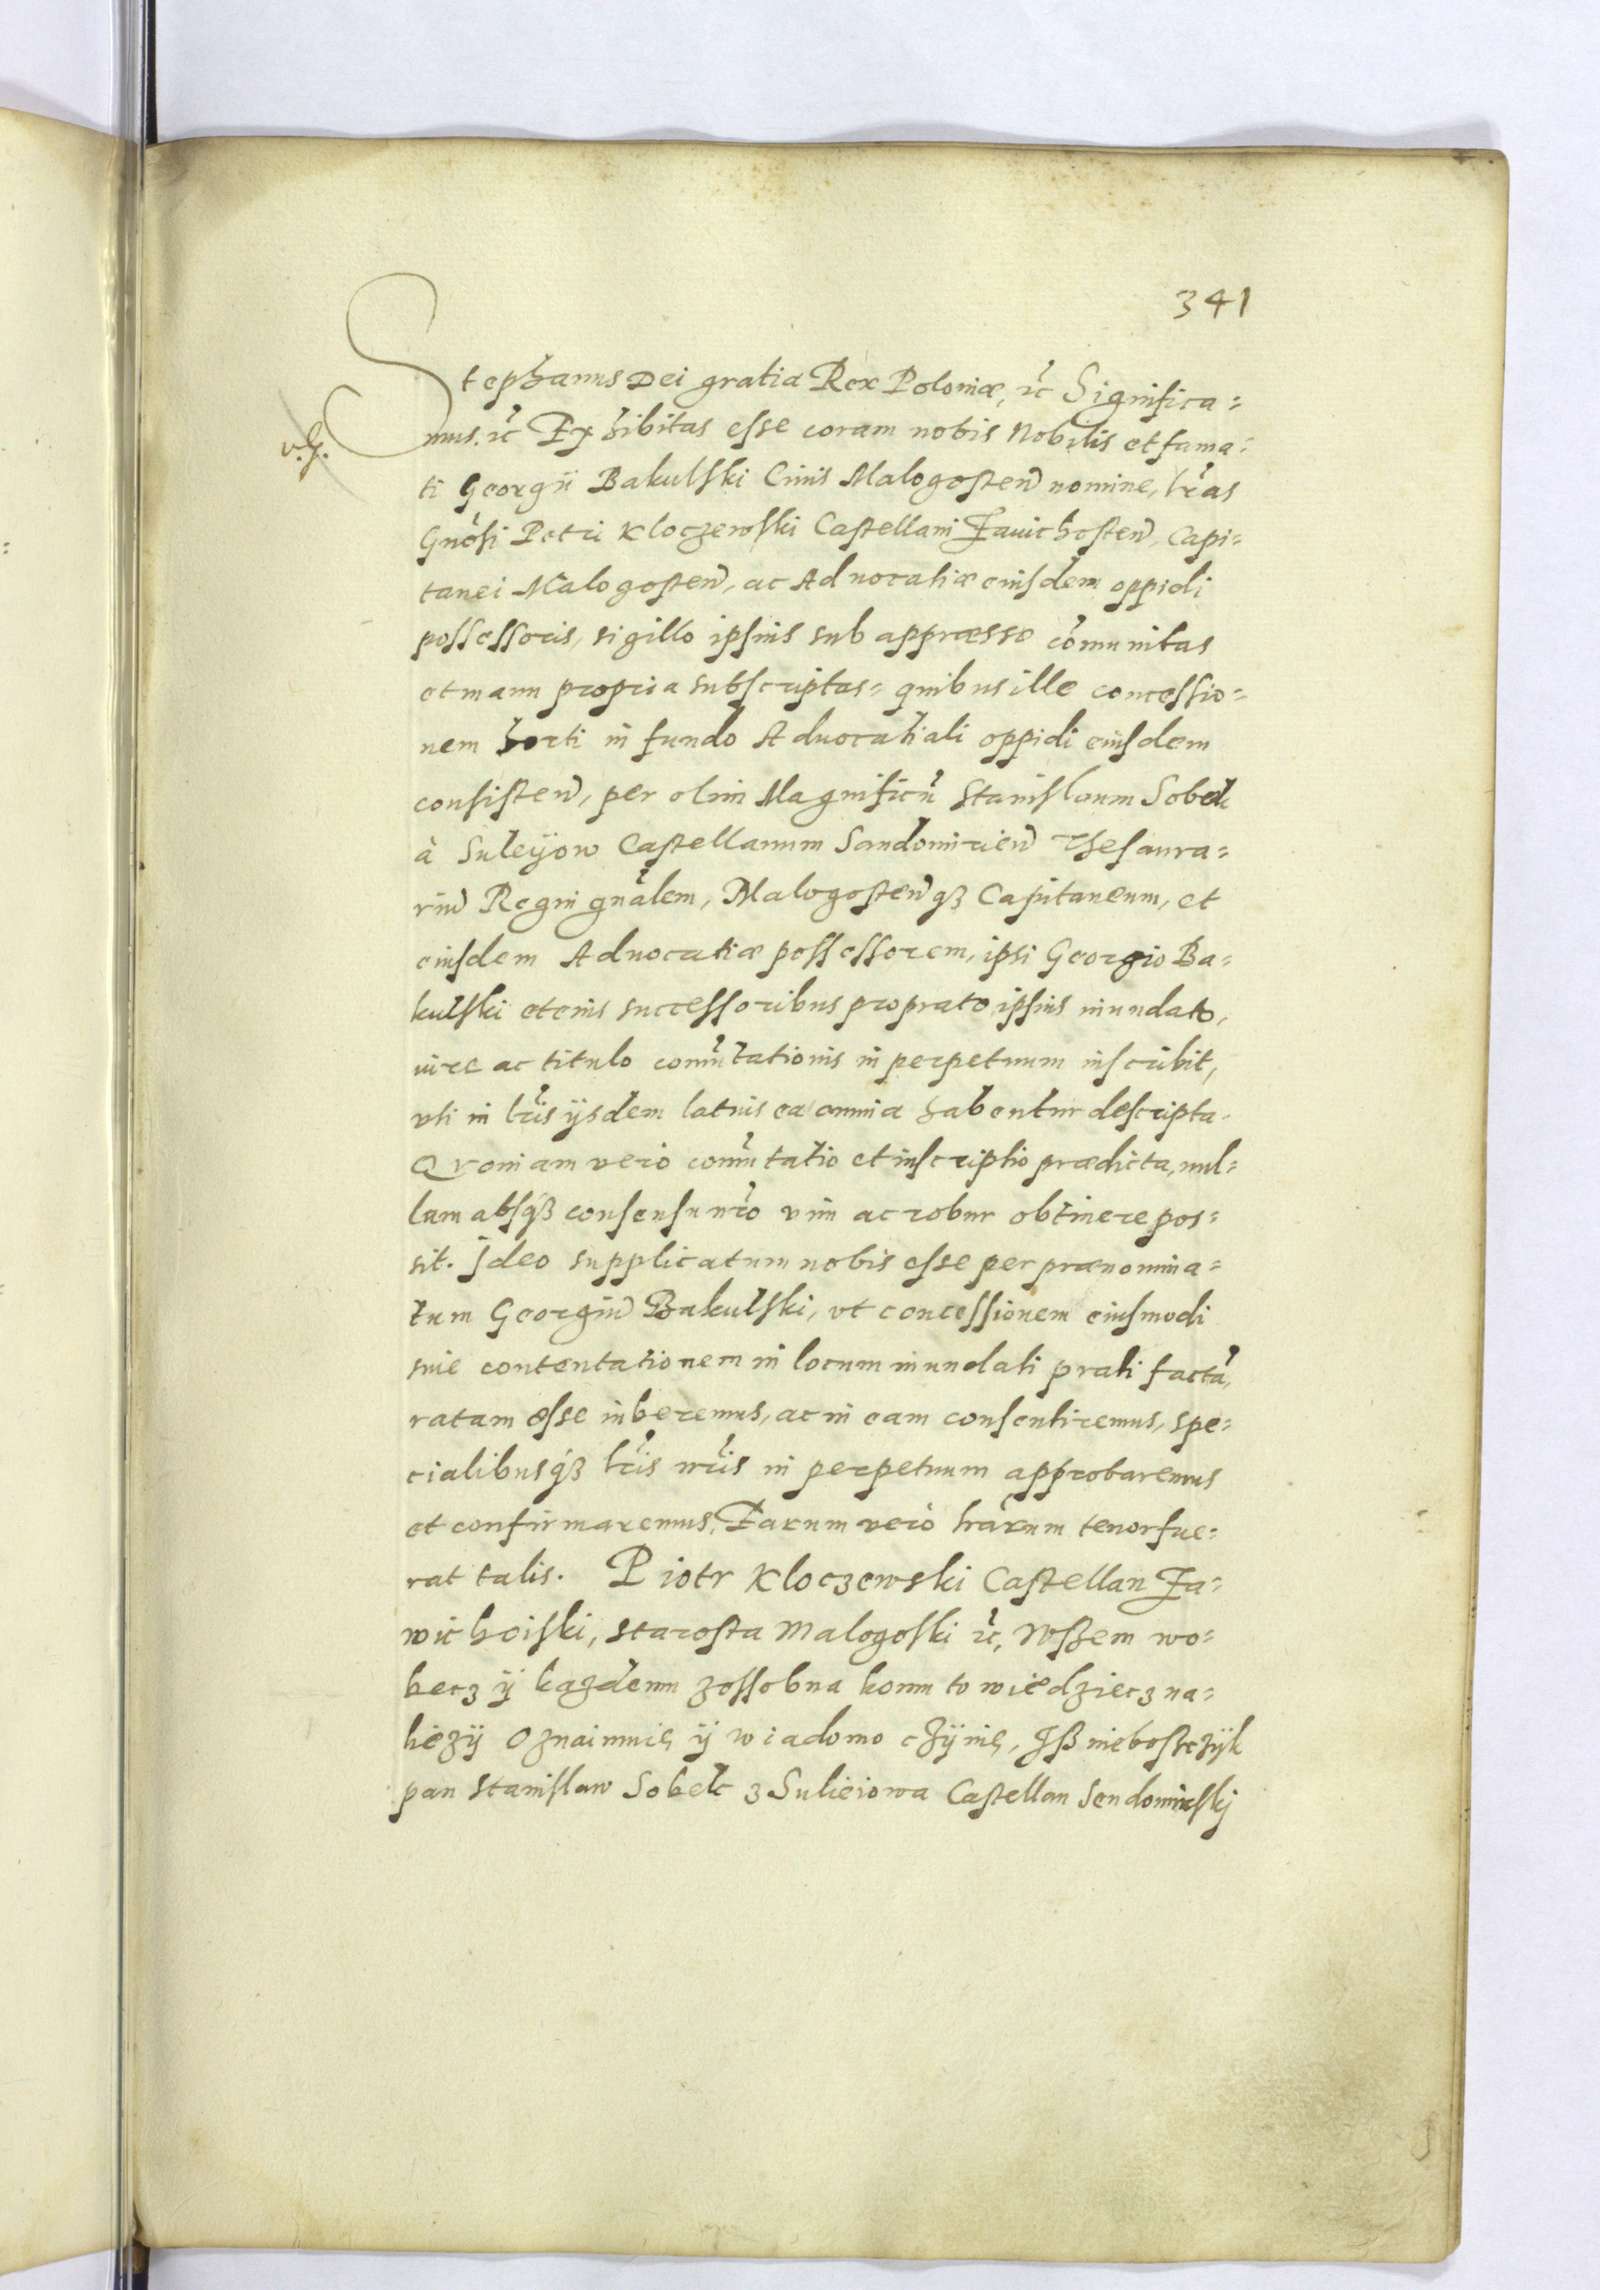 341
Stephanus Dei gratia Rex Poloniæ, ꝛc̃ Significa=
v.g.
mus. ꝛc̃ Exhibitas esse coram nobis Nobilis et fama=
ti Georgii Bakulski Ciuis Malogosteñ nomine, lr̃as
Gnõsi Petri Kloczewski Castellani Zauichosteñ, Capi=
tanei Malogosteñ, ac Aduocatiæ eiusdem oppidi
possessoris, sigillo ipsius sub appræsso cõmunitas
et manu propria subscriptas= quibus ille concessio=
nem horti in fundo Aduocatiali oppidi eiusdem
consisteñ, per olim Magnificũ Stanislaum Sobek
à Suleyow Castellanum Sandomirieñ Thesaura=
riũ Regni gnãlem, Malogosteñqз Capitaneum, et
eiusdem Aduocatiæ possessorem, ipsi Georgio Ba=
kulski et eius successoribus pro prato ipsius inundato,
iure ac titulo com̃utationis in perpetuum inscribit,
vti in lr̃is ijsdem latius ea omnia habentur descripta.
Quoniam verò com̃utatio et inscriptio prædicta, nul=
lam absqз consensu nr̃o vim ac robur obtinere pos=
sit. Ideo supplicatum nobis esse per prænomina=
tum Georgiũ Bakulski, vt concessionem eiusmodi
siue contentationem in locum inundati prati factã,
ratam esse iuberemus, ac in eam consentiremus, spe=
cialibusqз lr̃is nr̃is in perpetuum approbaremus
et confirmaremus, Earum verò lr̃arum tenor fue=
rat talis. Piotr Kloczewski Castellan Za=
wichoiski, Starosta Malogoski ꝛc̃, Wssem wo=
becz ÿ kazdemu zossobna komu to wiedziecz na=
liezÿ Oznaimuię ÿ wiadomo czÿnię, Iß nieboszczÿk
pan Stanislaw Sobek z Sulieiowa Castellan Sendomirskj